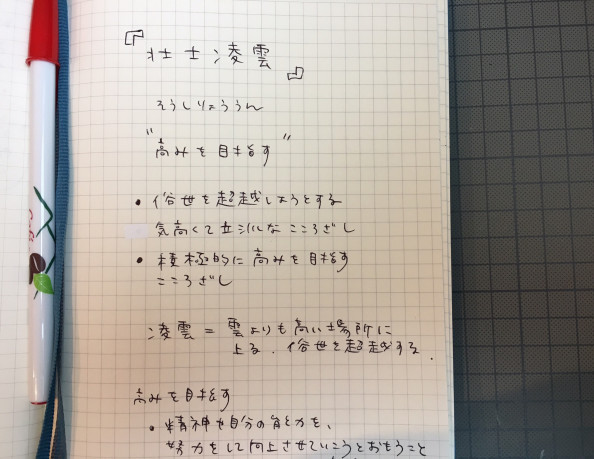 『壮士凌雲』
そうしりょううん
"高みを目指す"
• 俗世を超越しようとする
気高くて立派な こころざし
• 積極的に高みを目指す
こころざし
凌雲 = 雲よりも高い場所に
上る. 俗世を超越する.
高みを目指す
• 精神や自分の能力を、
努力をして向上させていこうとおもうこと